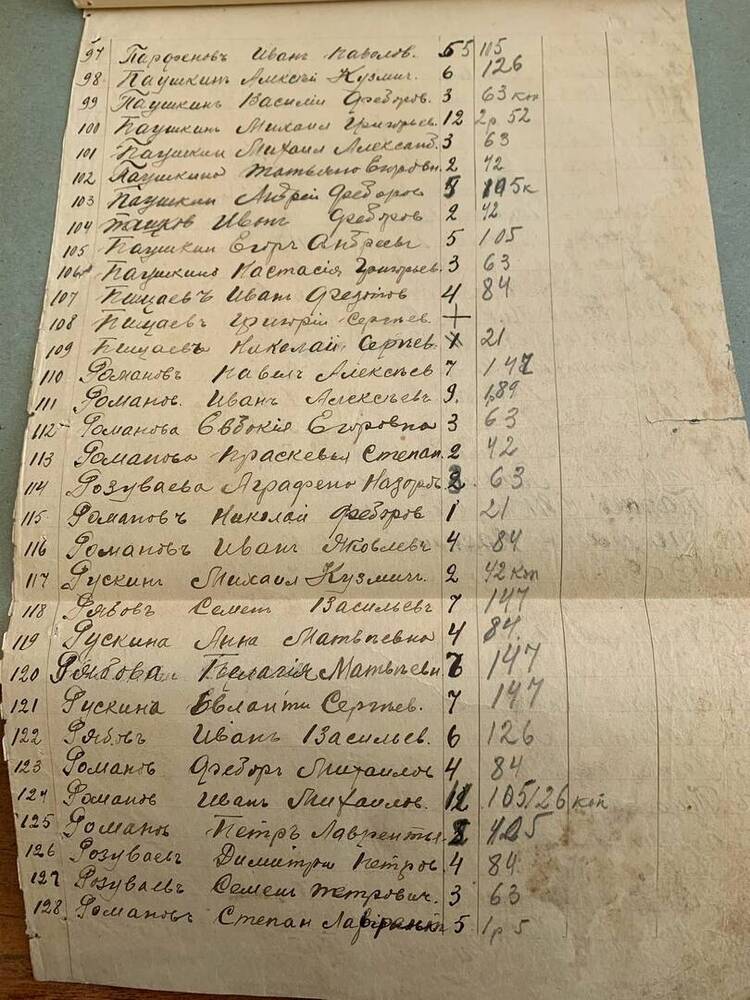 97 Парфеновъ Иванъ Павлов. 5 105
98 Паушкинъ Алексѣй Кузмич. 6 126
99 Паушкинъ Василіи Федоров. 3 63 коп
100 Паушкинъ Михаил Григорьев. 12 2р 52
101 Паушкин Михаил Александ. 3 63
102 Паушкина Татьяно Егоровн. 2 42
103 Паушкин Андрей Федоров 5 105 к
104 Иван Федоров 2 42
105 Паушкин Егоръ Андреевъ 5 105
106 Паушкино Настасія Григорьев. 3 63
107 Пищаевъ Иванъ Федотов 4 84
108 Пищаевъ Григоріи Сергѣев. +
109 Пищаевъ Николай Сергѣев 1 21
110 Романовъ Павелъ Алексѣев 7 147
111 Романов. Иванъ Алексѣевъ 9. 1р89
112 Романова Евдокія Егоровна 3 63
113 Романова Праскевья Степан. 2 42
114 Розуваева Аграфено Назоров 3 63
115 Романовъ Николай Федоров 1 21
116 Романовъ Иванъ Яковлевъ 4 84
117 Рускинъ Михаил Кузмич. 2 42 коп
118 Рябовъ Семен Васильевъ 7 147
119 Рускина Анна Матвѣевна 4 84
120 Рябова Пелагія Матвѣевн 7 147
121 Рускина Сергѣев. 7 147
122 Рябовъ Иванъ Васильев. 6 126
123 Романов Федоръ Михаилов 4 84
124 Романов Иванъ Михаилов. 105/26 коп
125 Романов Петръ Лаврентьев
126 Розуваевъ Димитрии Петров. 4 84
127 Розуваевъ Семен Петрович. 3 63
128 Романовъ Степан 5 1р 5